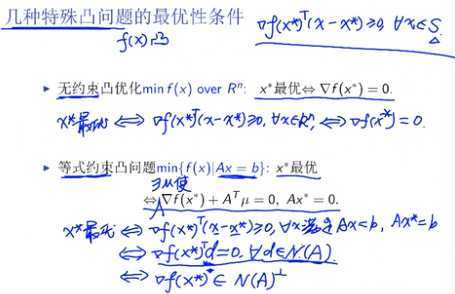 几种特殊凸问题的最优性条件
f(x)凸
∇f(x*)ᵀ(x-x*)≥0, ∀x∈S
▶ 无约束凸优化min f(x) over Rⁿ: x*最优⇔ ∇f(x*) = 0.
x*最优 ⇔ ∇f(x*)ᵀ(x-x*)≥0, ∀x∈Rⁿ, ⇔ ∇f(x*)=0.
▶ 等式约束凸问题min{f(x)|Ax = b}: x*最优
∃μ使
⇔ ∇f(x*) + Aᵀμ = 0, Ax* = 0.
x*最优 ⇔ ∇f(x*)ᵀ(x-x*)≥0, ∀x满足Ax=b, Ax*=b
⇔ ∇f(x*)ᵀd=0, ∀d∈N(A)
⇔ ∇f(x*)∈N(A)^⊥